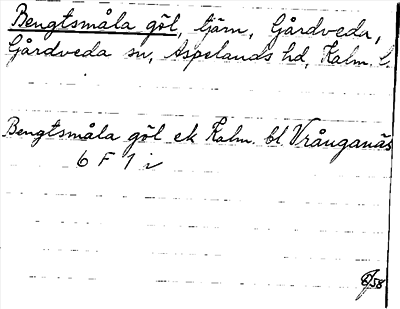 Bengtsmåla göl, tjärn, Gårdveda,
Gårdveda sn, Aspelands hd, Kalm. l.
Bengtsmåla göl ek Kalm. bl. Vrånganäs
6 F 1 i
/58